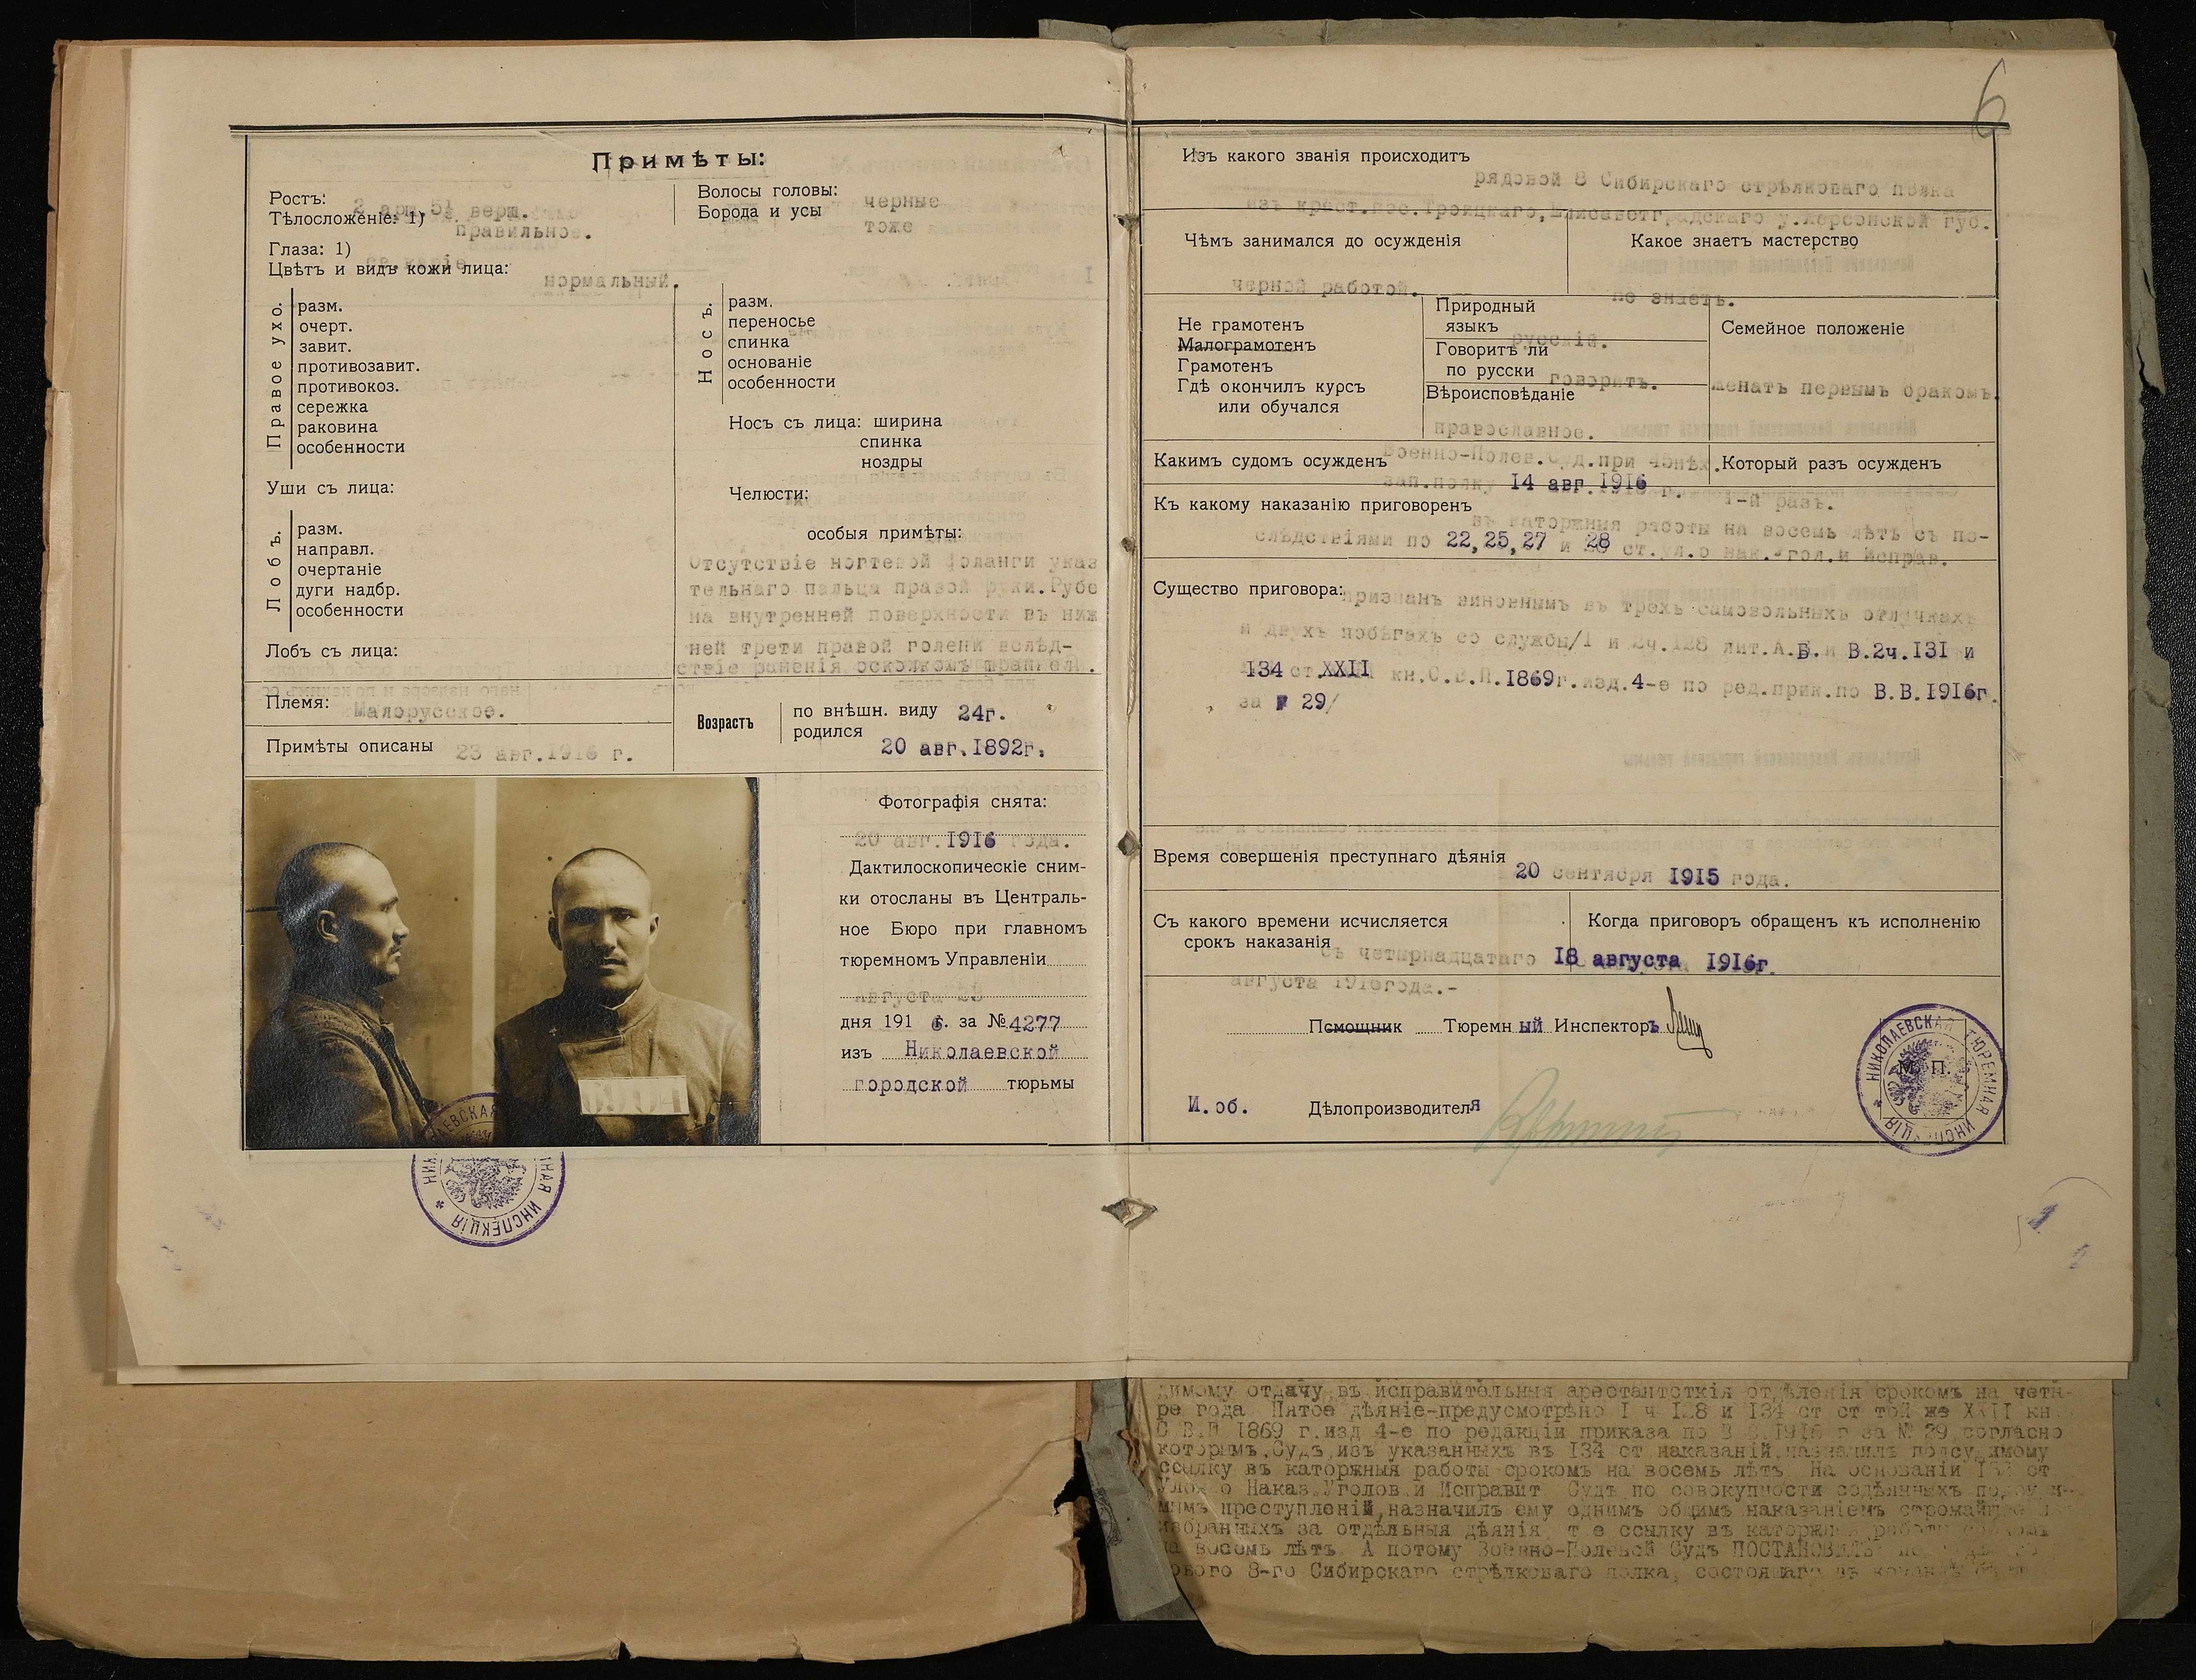 6
Примѣты:
Ростъ: 2 арш. 5½ верш.
Тѣлосложеніе: 1) правильное.
Глаза: 1) каріе
Цвѣтъ и видъ кожи лица: нормальный.
Волосы головы: черные
Борода и усы тоже
Правое ухо.
разм.
очерт.
завит.
противозавит.
противокоз.
сережка
раковина
особенности
Носъ.
разм.
переносье
спинка
основаніе
особенности
Уши съ лица:
Носъ съ лица: ширина
спинка
ноздры
Челюсти:
Лобъ.
разм.
направл.
очертаніе
дуги надбр.
особенности
Лобъ съ лица:
особыя примѣты:
Отсутствіе ногтевой фоланги указ
тельнаго пальца правой руки. Рубе
на внутренней поверхности въ ниж
ней трети правой голени вслѣд-
ствіе раненія осколкомъ шрапнели.
Племя: Малорусское.
Примѣты описаны 23 авг. 1916 г.
Возрастъ
по внѣшн. виду 24г.
родился 20 авг. 1892г.
Фотографія снята:
20 авг. 1916 года.
Дактилоскопическіе сним-
ки отосланы въ Централь-
ное Бюро при главномъ
тюремномъ Управленіи
августа 23
дня 191 6 г. за № 4277
изъ Николаевской
городской тюрьмы
НИКОЛАЕВСКАЯ ТЮРЕМНАЯ ИНСПЕКЦІЯ
Изъ какого званія происходитъ
рядовой 8 Сибирскаго стрѣлковаго полка
изъ крест. пос. Троицкаго, Елисаветградскаго у. Херсонской губ.
Чѣмъ занимался до осужденія
черной работой.
Какое знаетъ мастерство
не знаетъ.
Не грамотенъ
Малограмотенъ
Грамотенъ
Гдѣ окончилъ курсъ
или обучался
Природный
языкъ русскій.
Говоритъ ли
по русски говоритъ.
Вѣроисповѣданіе
православное.
Семейное положеніе
женатъ первымъ бракомъ.
Какимъ судомъ осужденъ Военно-Полев. Суд. при 45 пѣх.
зап. полку 14 авг. 1916 г.
Который разъ осужденъ
1-й разъ.
Къ какому наказанію приговоренъ
въ каторжныя работы на восемь лѣтъ съ по-
слѣдствіями по 22, 25, 27 и 28 ст. ул. о нак. угол. и исправ.
Существо приговора: признанъ виновнымъ въ трехъ самовольныхъ отлучкахъ
и двухъ побѣгахъ со службы/1 и 2ч. 128 лит. А. Б. и В. 2ч. 131 и
134 ст. XXII кн. С. В. П. 1869г. изд. 4-е по ред. прик. по В. В. 1916г.
за № 29/
Время совершенія преступнаго дѣянія
20 сентября 1915 года.
Съ какого времени исчисляется
срокъ наказанія съ четырнадцатаго
августа 1916 года.-
Когда приговоръ обращенъ къ исполненію
18 августа 1916г.
Помощник Тюремн ый Инспекторъ
И. об. Дѣлопроизводителя
М. П.
НИКОЛАЕВСКАЯ ТЮРЕМНАЯ ИНСПЕКЦІЯ
димому отдачу въ исправительныя арестантсткія отдѣленія срокомъ на четы-
ре года Пятое дѣяніе-предусмотрѣно I ч 128 и 134 ст ст той же XXII кн
С В П 1869 г. изд 4-е по редакціи приказа по В В 1916 г за № 29, согласно
которымъ Судъ изъ указанныхъ въ 134 ст наказаній, назначилъ подсудимому
ссылку въ каторжныя работы срокомъ на восемь лѣтъ На основаніи ст
Улож о Наказ Уголов и Исправит Судъ по совокупности содѣянныхъ подсуди-
мымъ преступленій, назначилъ ему однимъ общимъ наказаніемъ строжайшее
избранныхъ за отдѣльныя дѣянія т е ссылку въ каторжныя работы срокомъ
на восемь лѣтъ А потому Военно-Полевой Судъ ПОСТАНОВИЛЪ
8-го Сибирскаго стрѣлковаго полка, состоящаго въ